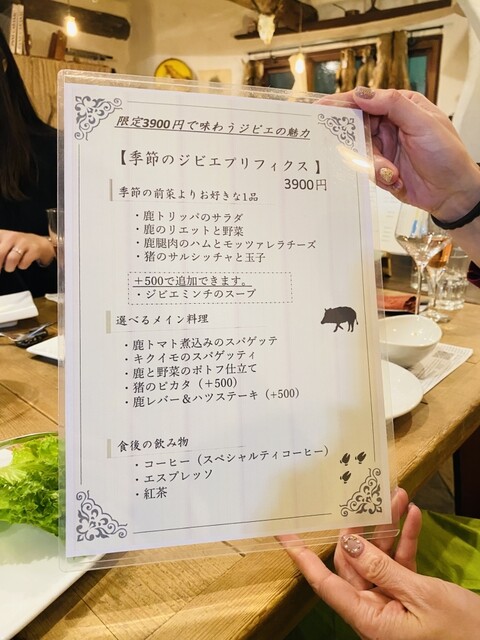 限定3900円で味わうジビエの魅力
【季節のジビエプリフィクス】
3900円
季節の前菜よりお好きな1品
・鹿トリッパのサラダ
・鹿のリエットと野菜
・鹿腿肉のハムとモッツァレラチーズ
・猪のサルシッチャと玉子
+500で追加できます。
・ジビエミンチのスープ
選べるメイン料理
・鹿トマト煮込みのスパゲッテ
・キクイモのスパゲッティ
・鹿と野菜のポトフ仕立て
・猪のピカタ（+500）
・鹿レバー＆ハツステーキ（+500）
食後の飲み物
・コーヒー（スペシャルティコーヒー）
・エスプレッソ
・紅茶